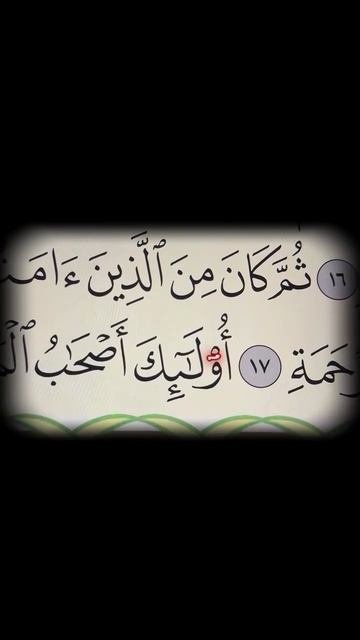 ١٦ ثُمَّ كَانَ مِنَ ٱلَّذِينَ ءَامَنـ
ـرْحَمَةِ ١٧ أُو۟لَـٰٓئِكَ أَصْحَـٰبُ ٱلْمَـ